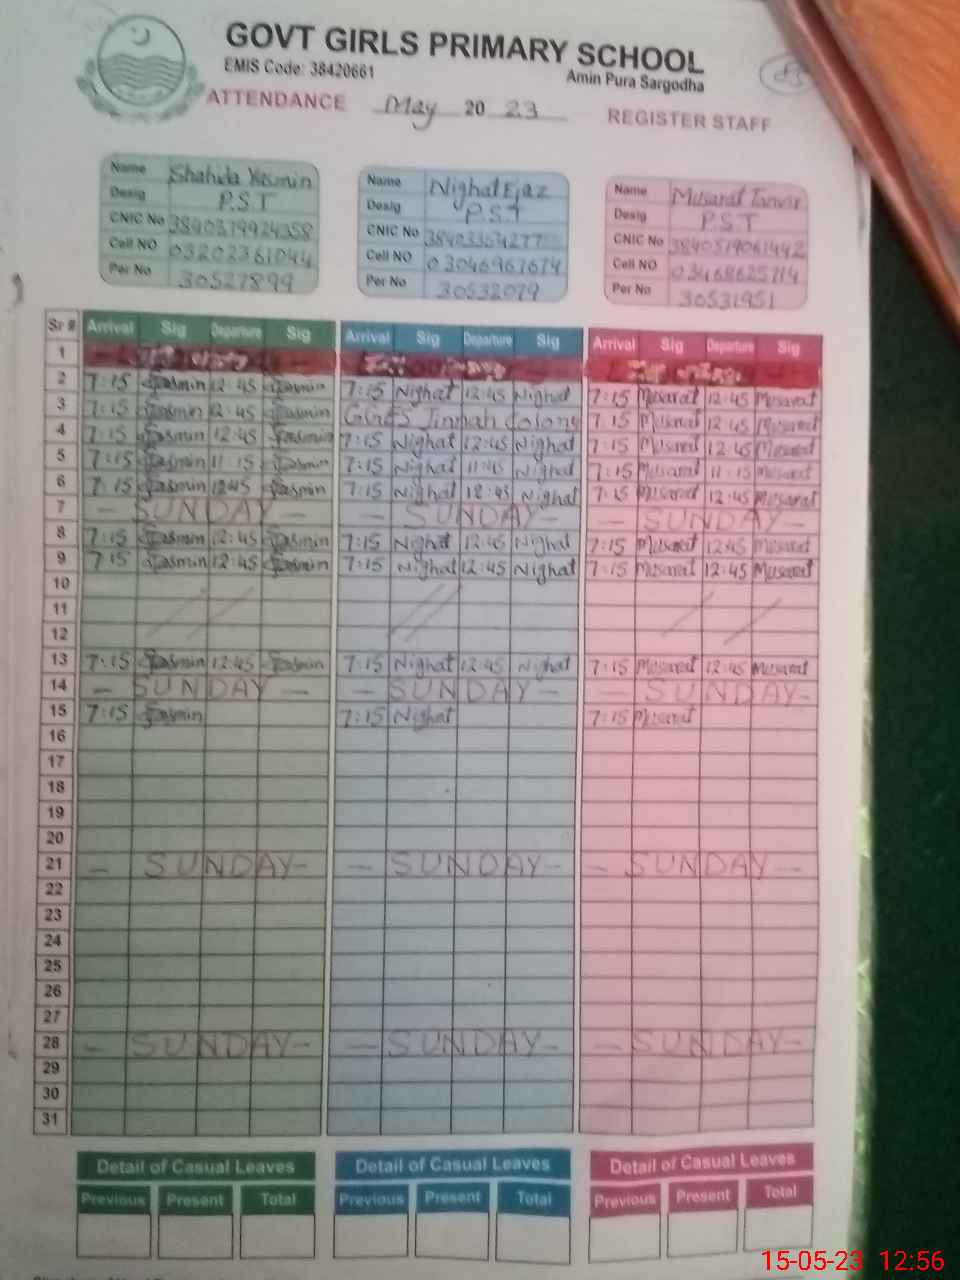 GOVT GIRLS PRIMARY SCHOOL
EMIS Code: 38420661
Amin Pura Sargodha
ATTENDANCE May 20 23 REGISTER STAFF
Name Shahida Yasmin
Desig P.S.T
CNIC No 3840379924358
Cell NO 03202361044
Per No 30527899
Name Nighat Ejaz
Desig P.S.T
CNIC No
Cell NO 03046967674
Per No 30532079
Name Musarat Tanvir
Desig P.S.T
CNIC No 3840519061442
Cell NO 03468625714
Per No 30531951
Sr # Arrival Sig Departure Sig Arrival Sig Departure Sig Arrival Sig Departure Sig
1
2 7:15 Yasmin 12:45 Yasmin 7:15 Nighat 12:45 Nighat 7:15 Musarat 12:45 Musarat
3 7:15 Yasmin 12:45 Yasmin GGES Jinnah Colony 7:15 Musarat 12:45 Musarat
4 7:15 Yasmin 12:45 Yasmin 7:15 Nighat 12:45 Nighat 7:15 Musarat 12:45 Musarat
5 7:15 Yasmin 11:15 Yasmin 7:15 Nighat Nighat 7:15 Musarat 11:15 Musarat
6 7:15 Yasmin 12:45 Yasmin 7:15 Nighat 12:45 Nighat 7:15 Musarat 12:45 Musarat
7 - SUNDAY - - SUNDAY - - SUNDAY -
8 7:15 Yasmin 12:45 Yasmin 7:15 Nighat 12:45 Nighat 7:15 Musarat 12:45 Musarat
9 7:15 Yasmin 12:45 Yasmin 7:15 Nighat 12:45 Nighat 7:15 Musarat 12:45 Musarat
10
11
12
13 7:15 Yasmin 12:45 Yasmin 7:15 Nighat 12:45 Nighat 7:15 Musarat 12:45 Musarat
14 - SUNDAY - - SUNDAY - - SUNDAY -
15 7:15 Yasmin 7:15 Nighat 7:15 Musarat
16
17
18
19
20
21 - SUNDAY - - SUNDAY - - SUNDAY -
22
23
24
25
26
27
28 - SUNDAY - - SUNDAY - - SUNDAY -
29
30
31
Detail of Casual Leaves Detail of Casual Leaves Detail of Casual Leaves
Previous Present Total Previous Present Total Previous Present Total
15-05-23 12:56